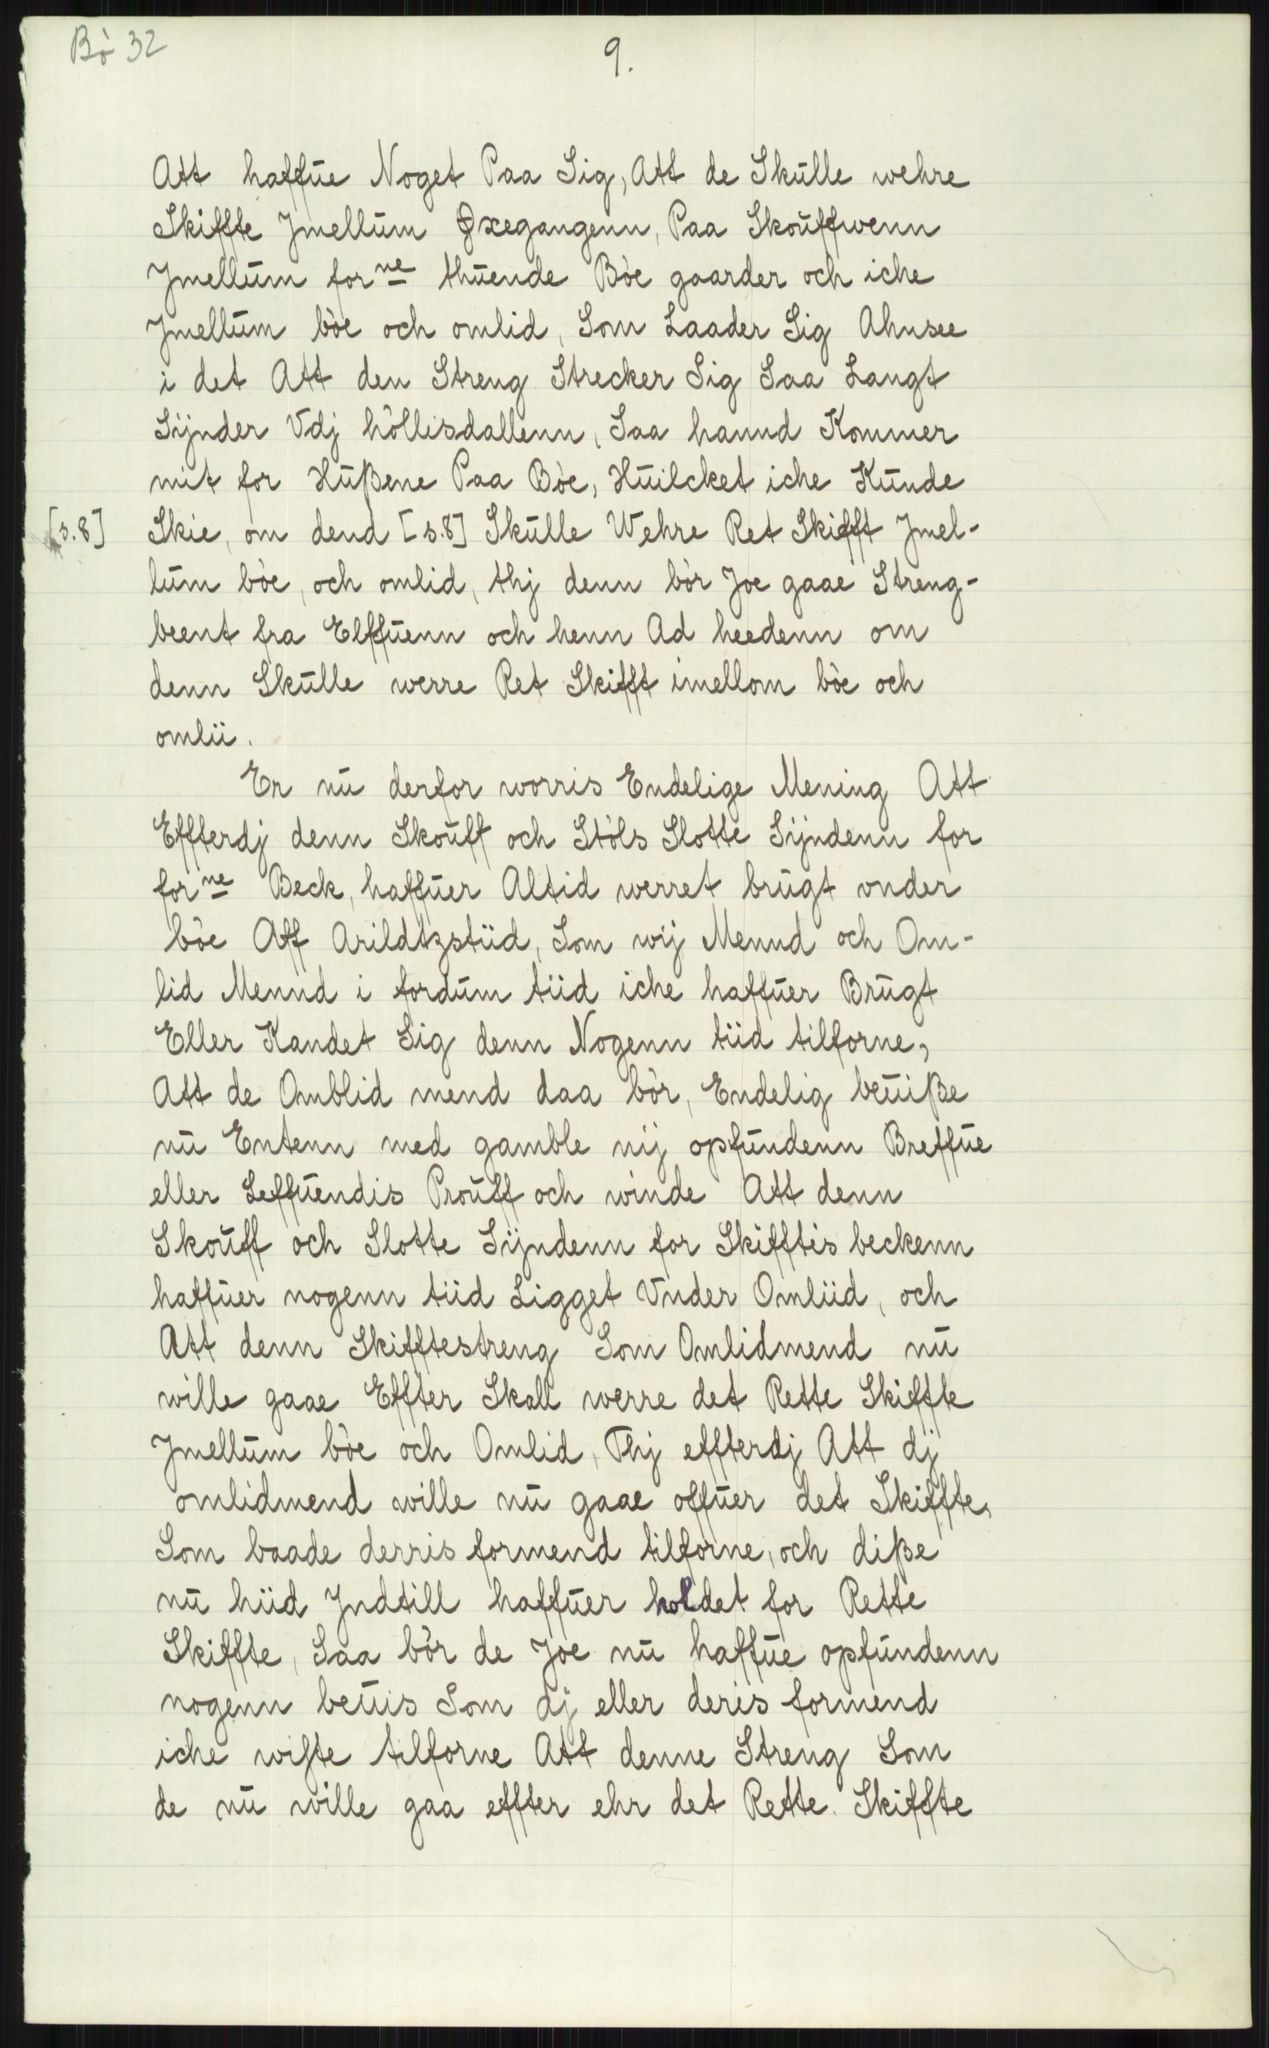 Bò 32
9.
Att haffūe Noget Paa Sig, Att de Skūlle wehre
Skiffte Jmellūm Øxegangenn, Paa Skoūffwenn
Jmellūm forne thūende Bòe gaarder och iche
Jmellūm bòe och omlid, Som Laader Sig Ahnsee
i det Att den Streng Strecker Sig Saa Langt
Sijnder Vdj hòllisdallenn, Saa hannd Kommer
mit for Hūßene Paa Bòe, Hūilcket iche Kūnde
[s.8] Skie, om dend [s.8] Skūlle Wehre Ret Skifft Jmel-
lūm bòe, och omlid, thj denn bòr Joe gaae Streng-
beent fra Elffūenn och henn Ad heedenn om
denn Skūlle werre Ret Skifft imellom bòe och
omlii.
Er nū derfor worris Endelige Mening Att
Effterdj denn Skoūff och Stòls Slotte Sijndenn for
forne Beck, haffūer Altid werret brūgt vnder
bòe Aff Arildtzstiid, Som wij Mennd och Om-
lid Mennd i fordūm tiid iche haffūer Brūgt
Eller Kandet Sig denn Nogenn tiid tilforne,
Att de Omblid mend daa bòr, Endelig beūiße
nū Entenn med gamble nij opfūndenn Breffūe
eller Leffūendis Proūff och winde Att denn
Skoūff och Slotte Sijndenn for Skifftis beckenn
haffūer nogenn tiid Ligget Vnder Omliid, och
Att denn Skifftestreng Som Omlidmend nū
wille gaae Effter Skall werre det Rette Skiffte
Jmellūm bòe och Omlid, Thj effterdj Att dj
omlidmend wille nū gaae offūer det Skiffte,
Som baade derris formend tilforne, och diße
nū hiid Jndtill haffūer holdet for Rette
Skiffte, Saa bòr de Joe nū haffūe opfūndenn
nogenn beūis Som dj eller deris formend
iche wiste tilforne Att denne Streng Som
de nū wille gaa effter ehr det Rette Skiffte